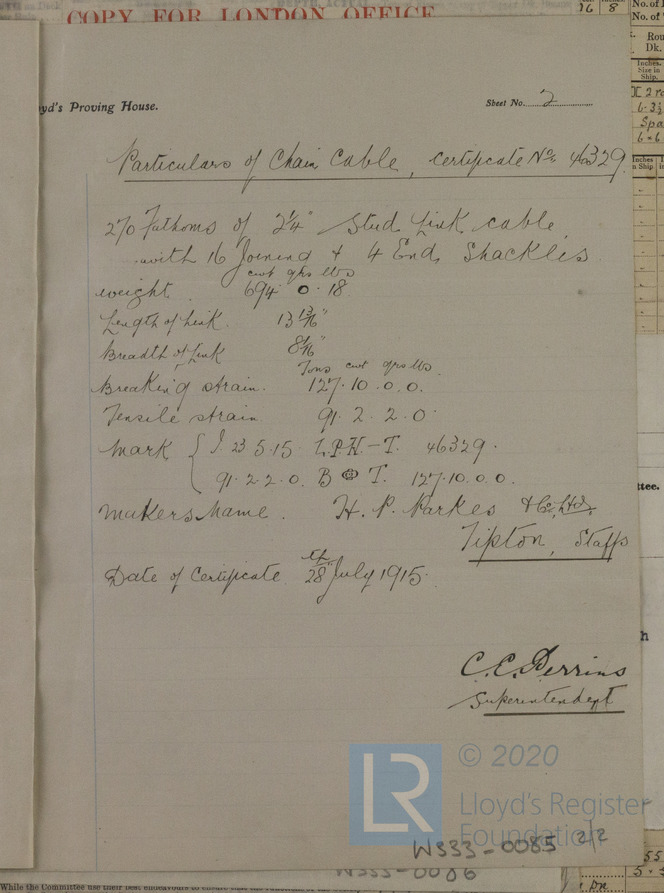 COPY FOR LONDON OFFICE
16 8
No. of
No. of
Rou
Dk.
Inches.
Size in
Ship.
yd's Proving House.
Sheet No. 2
Particulars of Chain Cable, certificate No. 46329.
270 Fathoms of 2¼" Stud Link cable
with 16 Joining & 4 End Shackles
cwt qrs lbs
weight. 694 0.18.
Length of Link. 13 13/16"
Breadth of Link 8 1/16"
Tons cwt qrs lbs.
Breaking strain. 127.10.0.0.
Tensile strain 91.2.2.0.
Mark { 23 5.15 L.P.H-T. 46329.
91.2.2.0. B T. 127.10.0.0.
Makers Name. H. P. Parkes & Co. Ltd.
Tipton, Staffs
Date of Certificate 28th July 1915.
C. E. Perrins
Superintendent
© 2020
LR
Lloyd's Register
Foundation
W533-0085 2/2
W533-0086
While the Committee use their best endeavours to